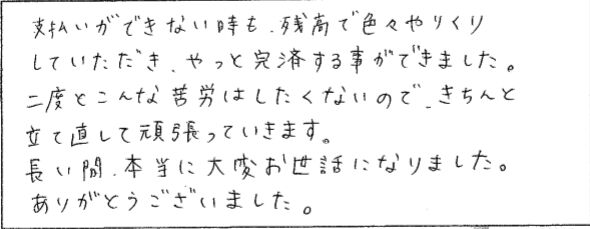 支払いができない時も、残高で色々やりくり
していただき、やっと完済する事ができました。
二度とこんな苦労はしたくないので、きちんと
立て直して頑張っていきます。
長い間、本当に大変お世話になりました。
ありがとうございました。